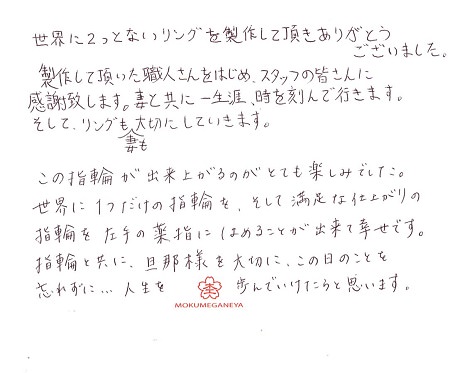 世界に2つとないリングを製作して頂きありがとう
ございました。
製作して頂いた職人さんをはじめ、スタッフの皆さんに
感謝致します。妻と共に一生涯、時を刻んで行きます。
そして、リングも大切にしていきます。
妻も
この指輪が出来上がるのがとても楽しみでした。
世界に1つだけの指輪を、そして満足な仕上がりの
指輪を左手の薬指にはめることが出来て幸せです。
指輪と共に、旦那様を大切に、この日のことを
忘れずに… 人生を 歩んでいけたらと思います。
MOKUMEGANEYA